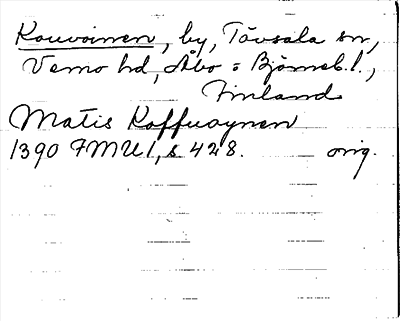 Kouvoinen, by, Tövsala sn,
Vemo hd, Åbo o Björneb. l.,
Finland
Matis Koffuoynen
1390 FMU I, s 428. orig.